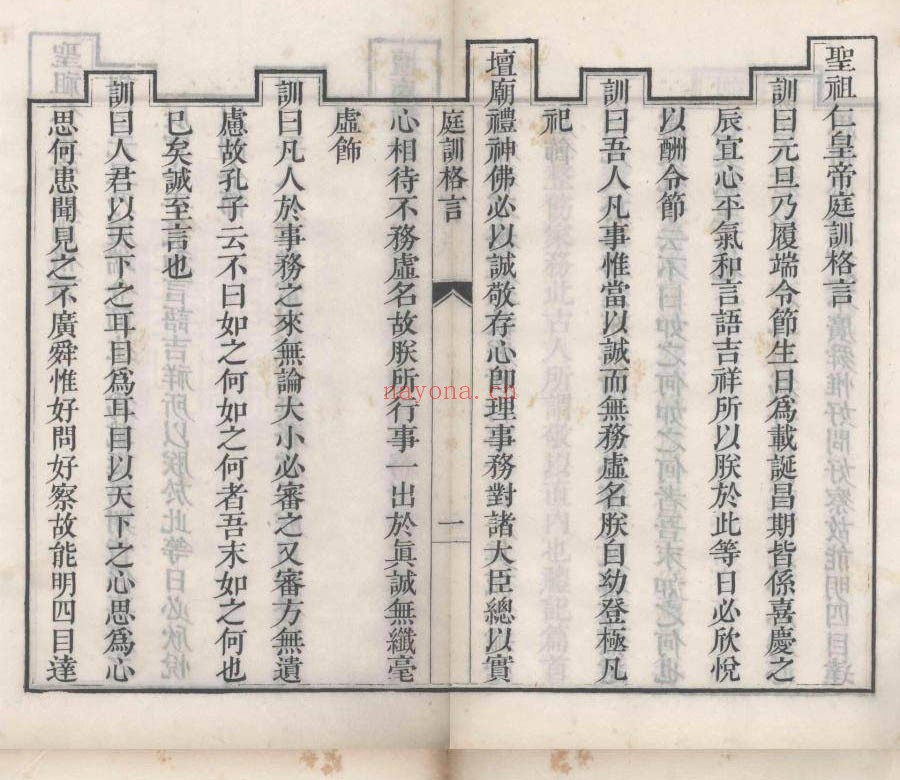 聖祖仁皇帝庭訓格言
訓曰元旦乃履端令節生日爲載誕昌期皆係喜慶之
辰宜心平氣和言語吉祥所以朕於此等日必欣悅
以酬令節
訓曰吾人凡事惟當以誠而無務虛名朕自幼登極凡
祀
壇廟禮神佛必以誠敬存心卽理事務對諸大臣總以實
庭訓格言
一
心相待不務虛名故朕所行事一出於眞誠無纖毫
虛飾
訓曰凡人於事務之來無論大小必審之又審方無遺
慮故孔子云不曰如之何如之何者吾末如之何也
已矣誠至言也
訓曰人君以天下之耳目爲耳目以天下之心思爲心
思何患聞見之不廣舜惟好問好察故能明四目達
nayona.cn